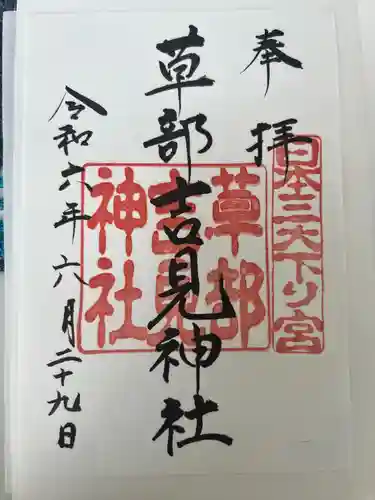 奉拝
日本三大下り宮
草部吉見神社
草部吉見神社
令和六年六月二十九日